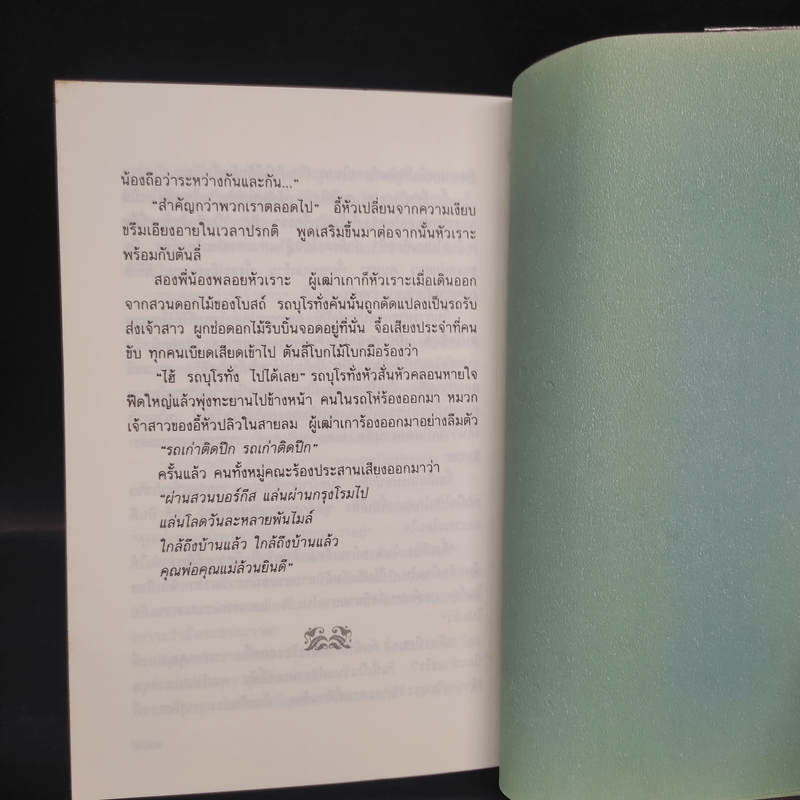 น้องถือว่าระหว่างกันและกัน..."
"สำคัญกว่าพวกเราตลอดไป" อี้หัวเปลี่ยนจากความเงียบ
ขรึมเอียงอายในเวลาปรกติ พูดเสริมขึ้นมาต่อจากนั้นหัวเราะ
พร้อมกับตันลี่
สองพี่น้องพลอยหัวเราะ ผู้เฒ่าเกาก็หัวเราะเมื่อเดินออก
จากสวนดอกไม้ของโบสถ์ รถบุโรทั่งคันนั้นถูกดัดแปลงเป็นรถรับ
ส่งเจ้าสาว ผูกช่อดอกไม้ริบบิ้นจอดอยู่ที่นั่น จื้อเสียงประจำที่คน
ขับ ทุกคนเบียดเสียดเข้าไป ตันลี่โบกไม้โบกมือร้องว่า
"ไฮ้ รถบุโรทั่ง ไปได้เลย" รถบุโรทั่งหัวสั่นหัวคลอนหายใจ
ฟืดใหญ่แล้วพุ่งทะยานไปข้างหน้า คนในรถโห่ร้องออกมา หมวก
เจ้าสาวของอี้หัวปลิวในสายลม ผู้เฒ่าเการ้องออกมาอย่างลืมตัว
"รถเก่าติดปีก รถเก่าติดปีก"
ครั้นแล้ว คนทั้งหมู่คณะร้องประสานเสียงออกมาว่า
"ผ่านสวนบอร์กีส แล่นผ่านกรุงโรมไป
แล่นโลดวันละหลายพันไมล์
ใกล้ถึงบ้านแล้ว ใกล้ถึงบ้านแล้ว
คุณพ่อคุณแม่ล้วนยินดี"